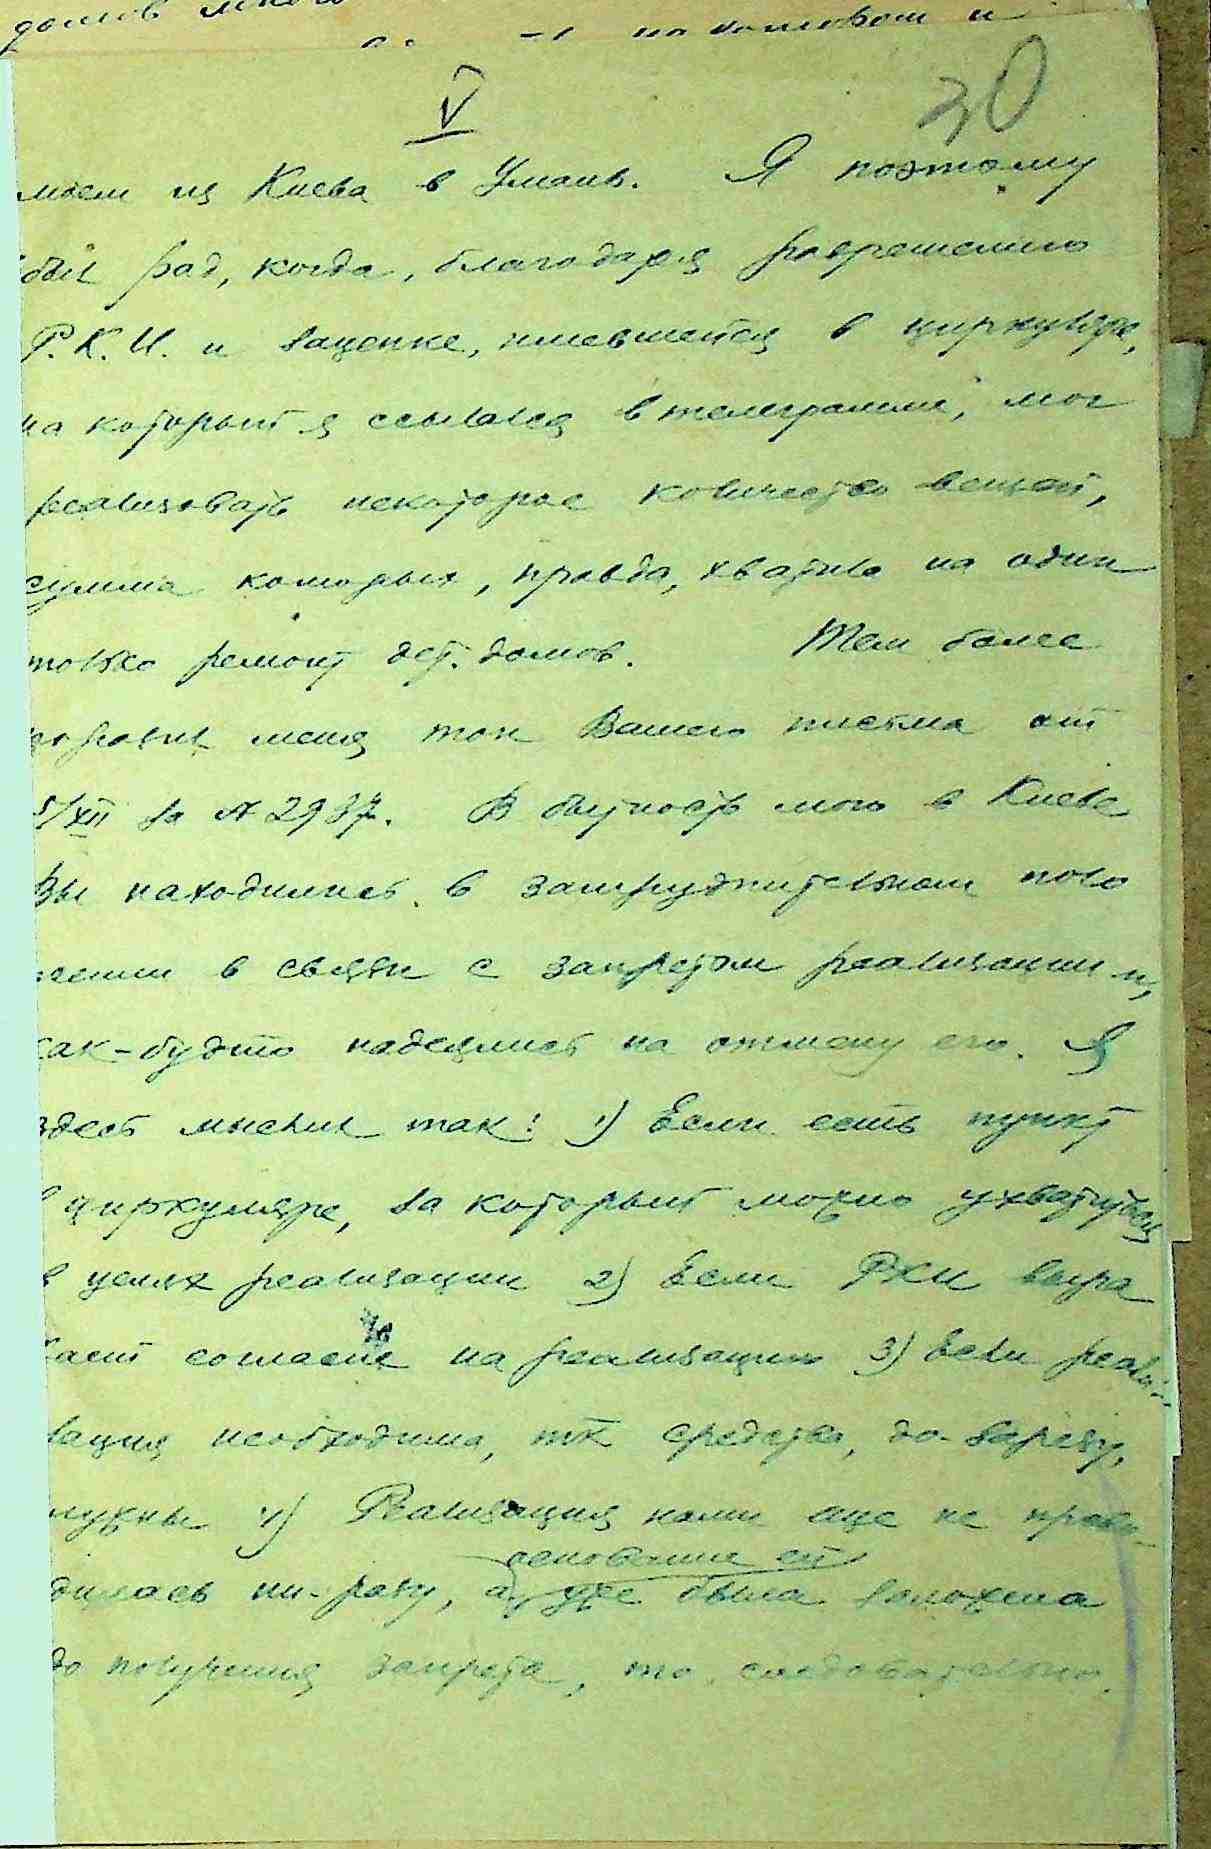 домов много
на котором и
V
30
моем из Киева в Умань. Я поэтому
был рад, когда, благодаря разрешению
Р.К.И. и зацепке, имевшейся в циркуляре,
на который я ссылался в телеграмме, мог
реализовать некоторое количество вещей,
сумма которых, правда, хватило на один
только ремонт дет. домов. Тем более
поразил меня тон Вашего письма от
5/XII за № 2937. В бытность мою в Киеве
Вы находились в затруднительном поло
жении в связи с запретом реализации и,
как-будто надеялись на отмену его. Я
здесь мыслил так: 1) Если есть пункт
в циркуляре, за который можно ухватиться
в целях реализации 2) Если РКИ выра
жает согласие на реализацию 3) Если реали-
зация необходима, тк средства, до-зарезу,
нужны 4) Реализация нами еще не прово-
основание ей
дилась ни-разу, а уже была заложена
до получения запрета, то, следовательно,